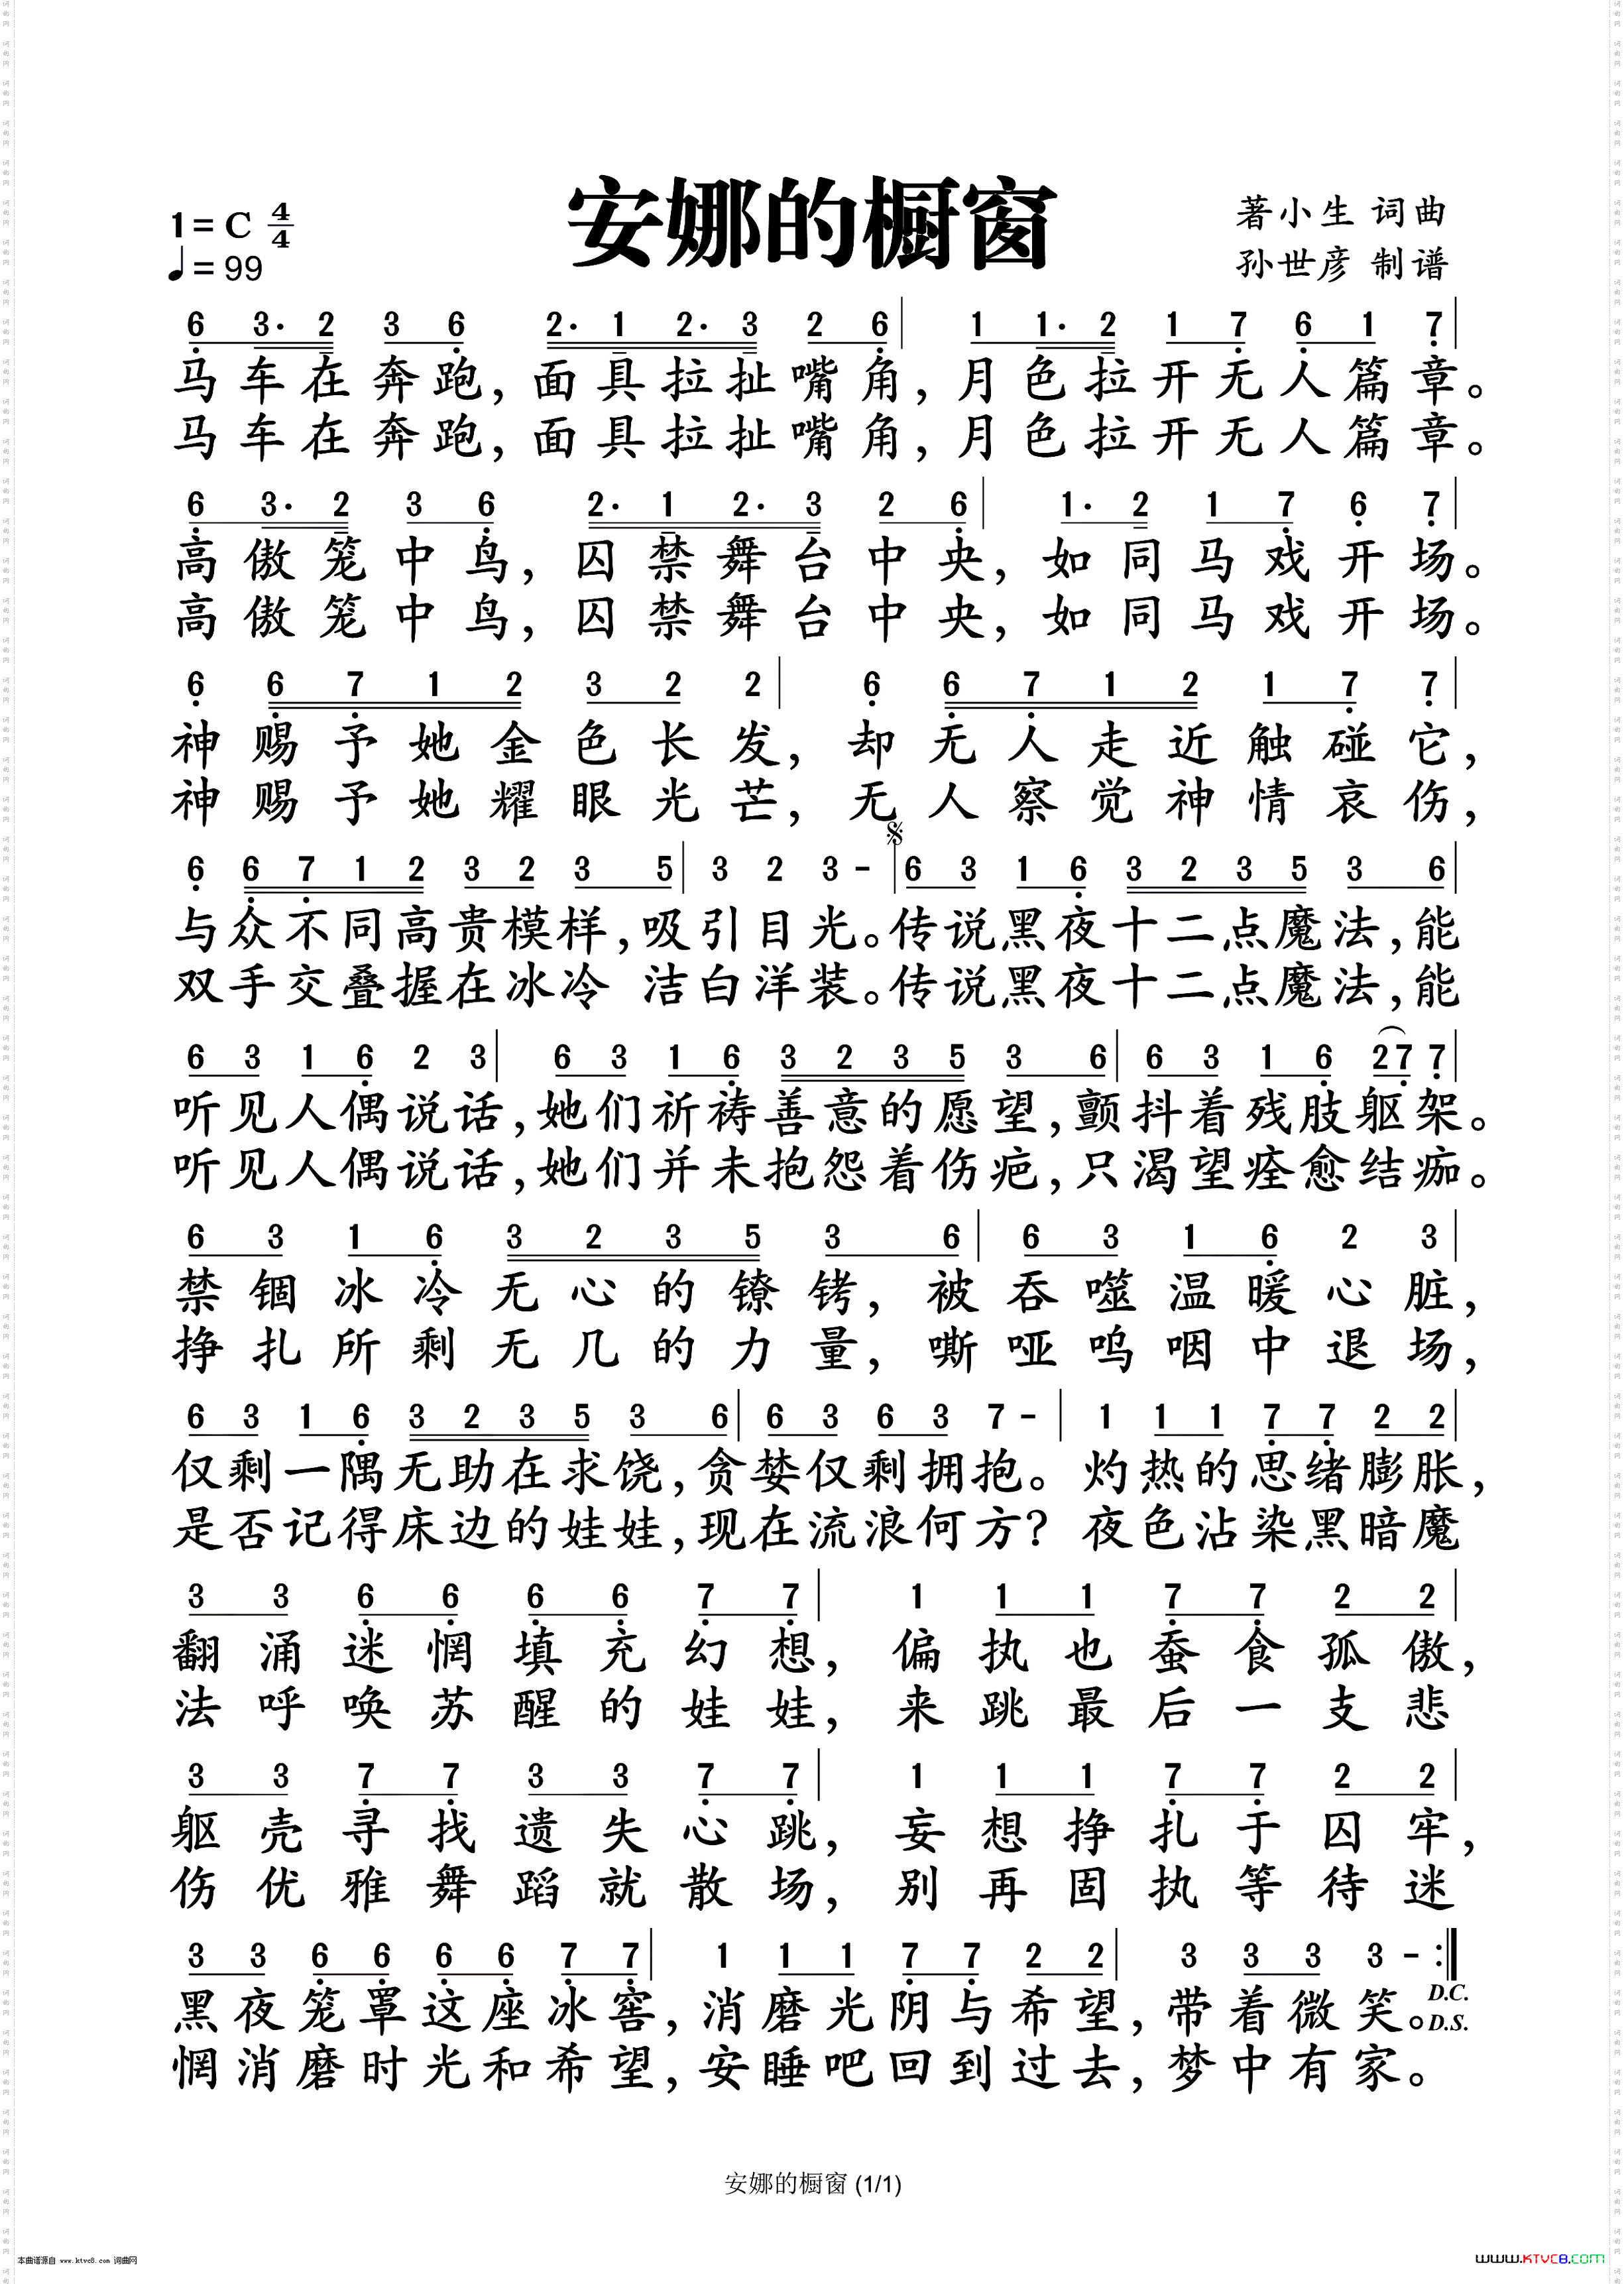 安娜的橱窗
1=C 4/4
♩=99
著小生 词曲
孙世彦 制谱
6 3· 2 3 6 2· 1 2· 3 2 6 | 1 1· 2 1 7 6 1 7 |
马车在奔跑，面具拉扯嘴角，月色拉开无人篇章。
马车在奔跑，面具拉扯嘴角，月色拉开无人篇章。
6 3· 2 3 6 2· 1 2· 3 2 6 | 1· 2 1 7 6 7 |
高傲笼中鸟，囚禁舞台中央，如同马戏开场。
高傲笼中鸟，囚禁舞台中央，如同马戏开场。
6 6 7 1 2 3 2 2 | 6 6 7 1 2 1 7 7 |
神赐予她金色长发，却无人走近触碰它，
神赐予她耀眼光芒，无人察觉神情哀伤，
6 6 7 1 2 3 2 3 5 | 3 2 3 - | 6 3 1 6 3 2 3 5 3 6 |
与众不同高贵模样，吸引目光。传说黑夜十二点魔法，能
双手交叠握在冰冷 洁白洋装。传说黑夜十二点魔法，能
6 3 1 6 2 3 | 6 3 1 6 3 2 3 5 3 6 | 6 3 1 6 27 7 |
听见人偶说话，她们祈祷善意的愿望，颤抖着残肢躯架。
听见人偶说话，她们并未抱怨着伤疤，只渴望痊愈结痂。
6 3 1 6 3 2 3 5 3 6 | 6 3 1 6 2 3 |
禁锢冰冷无心的镣铐，被吞噬温暖心脏，
挣扎所剩无几的力量，嘶哑呜咽中退场，
6 3 1 6 3 2 3 5 3 6 | 6 3 6 3 7 - | 1 1 1 7 7 2 2 |
仅剩一隅无助在求饶，贪婪仅剩拥抱。灼热的思绪膨胀，
是否记得床边的娃娃，现在流浪何方？夜色沾染黑暗魔
3 3 6 6 6 6 7 7 | 1 1 1 7 7 2 2 |
翻涌迷惘填充幻想，偏执也蚕食孤傲，
法呼唤苏醒的娃娃，来跳最后一支悲
3 3 7 7 3 3 7 7 | 1 1 1 7 7 2 2 |
躯壳寻找遗失心跳，妄想挣扎于囚牢，
伤优雅舞蹈就散场，别再固执等待迷
3 3 6 6 6 6 7 7 | 1 1 1 7 7 2 2 | 3 3 3 3 - :|
D.C.
黑夜笼罩这座冰窖，消磨光阴与希望，带着微笑。D.S.
惘消磨时光和希望，安睡吧回到过去，梦中有家。
安娜的橱窗 (1/1)
本曲谱源自 www.ktvc8.com 词曲网
www.KTVC8.com